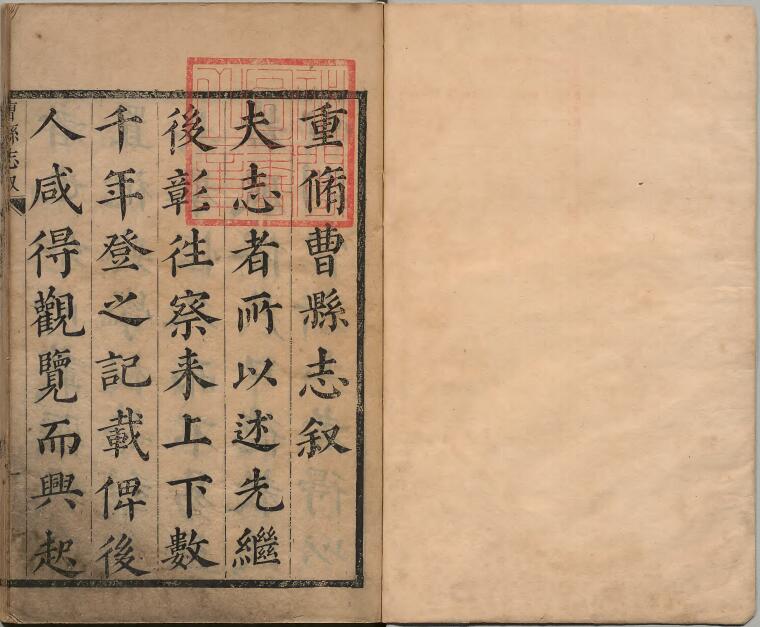 重脩曹縣志叙
夫志者所以述先繼
後彰徃察来上下數
千年登之記載俾後
人咸得觀覽而興起
曹縣志叙